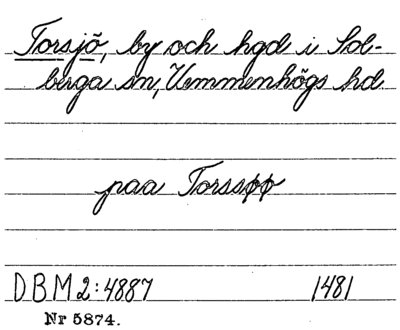 Torsjö, by och hgd i Sol-
berga sn, Vemmenhögs hd.
paa Torssøø
DBM 2:4887 1481
Nr 5874.